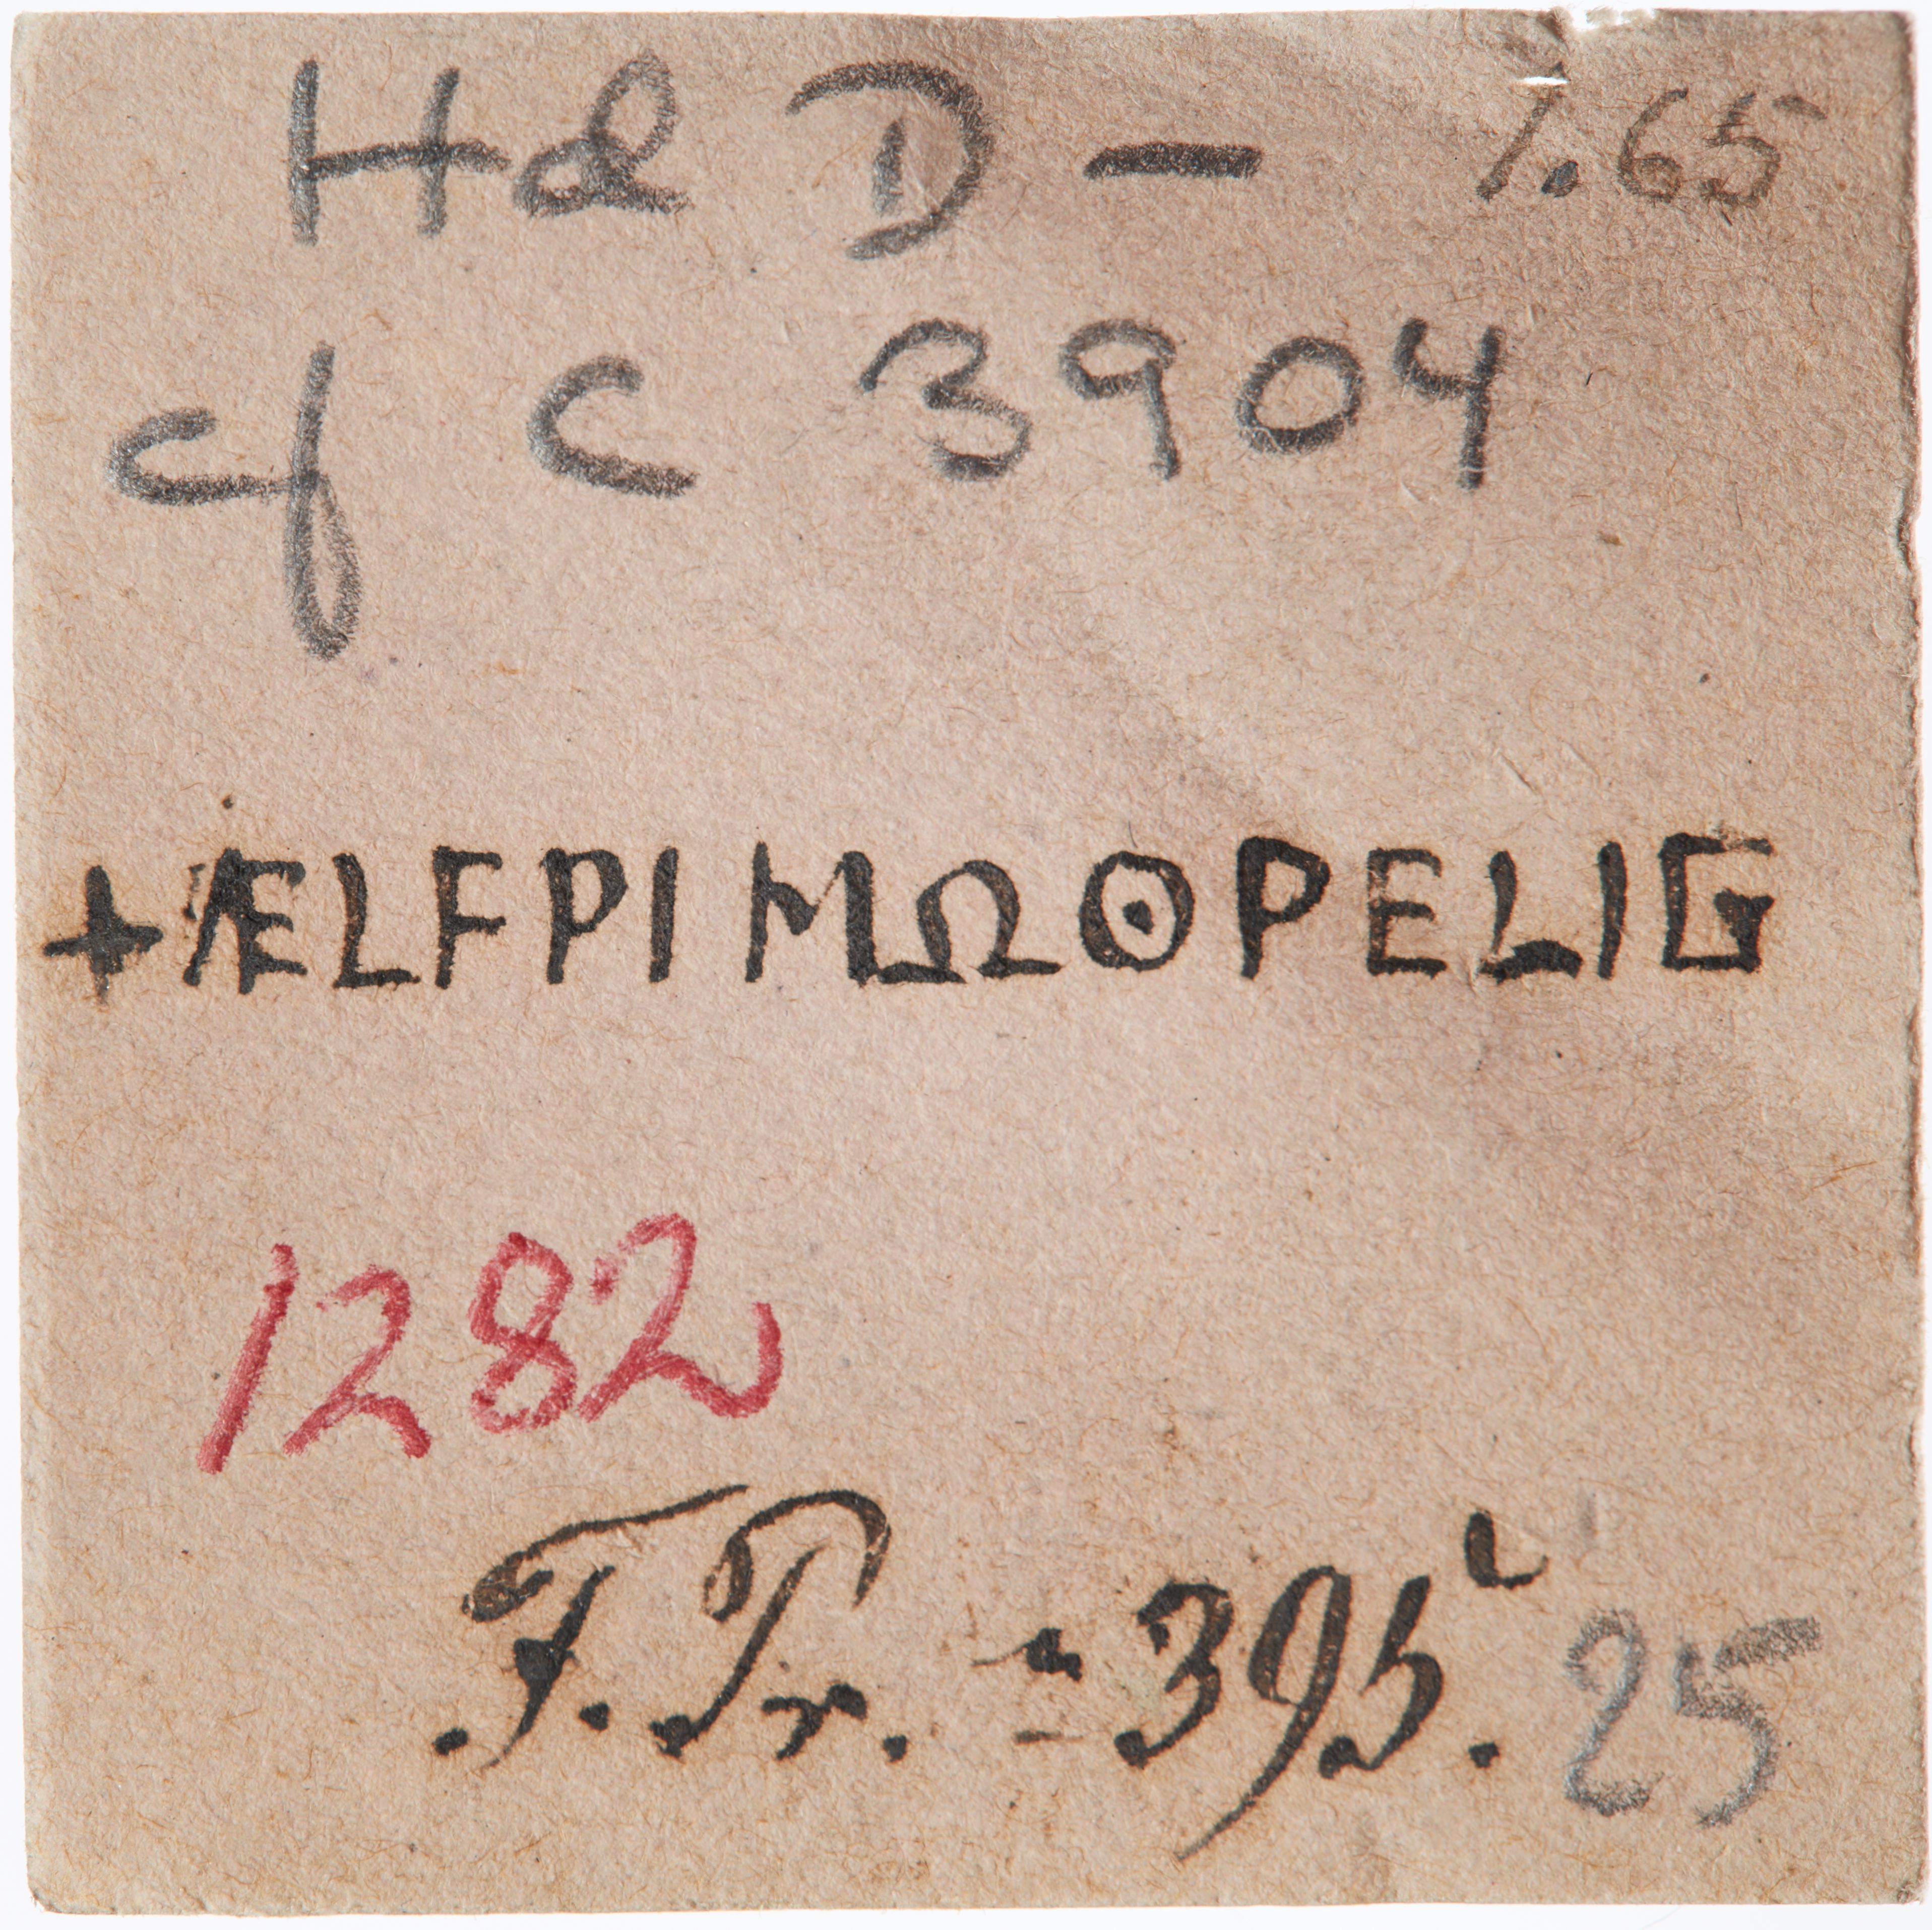 Hd D — 1.65
cf C 3904
+ÆLFPIMΩOPELIG
1282
F. Pr. = 395² 25